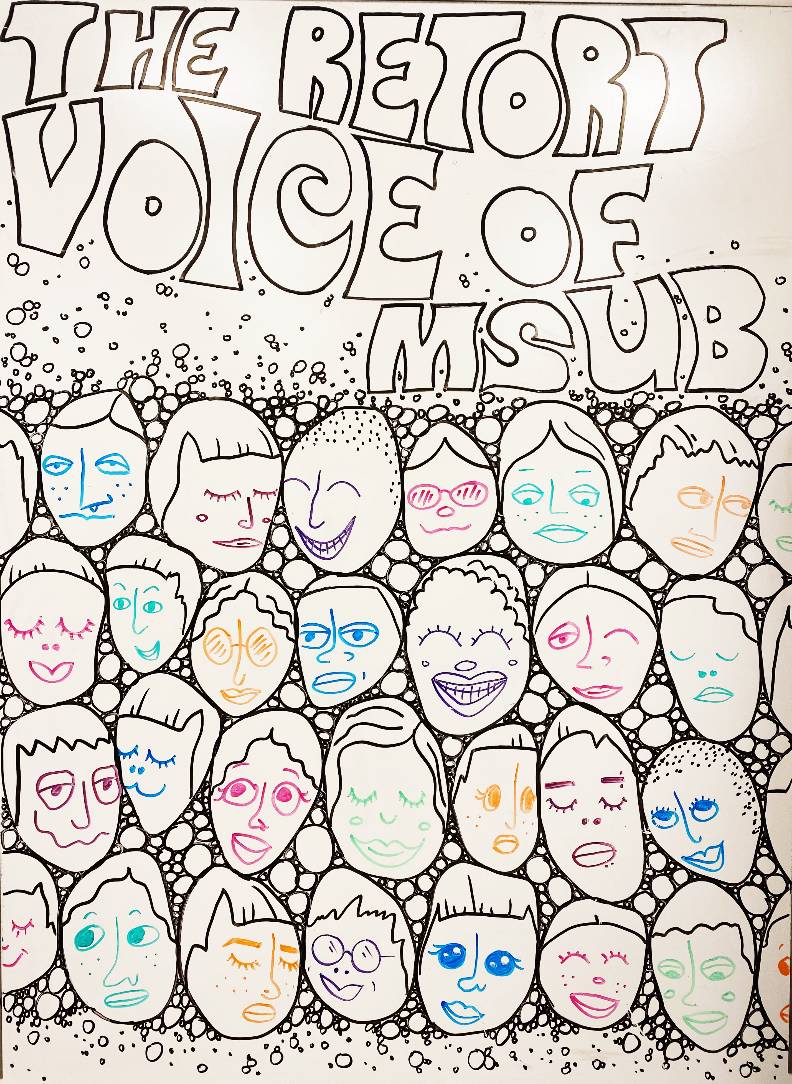 THE RETORT
VOICE OF
MSUB